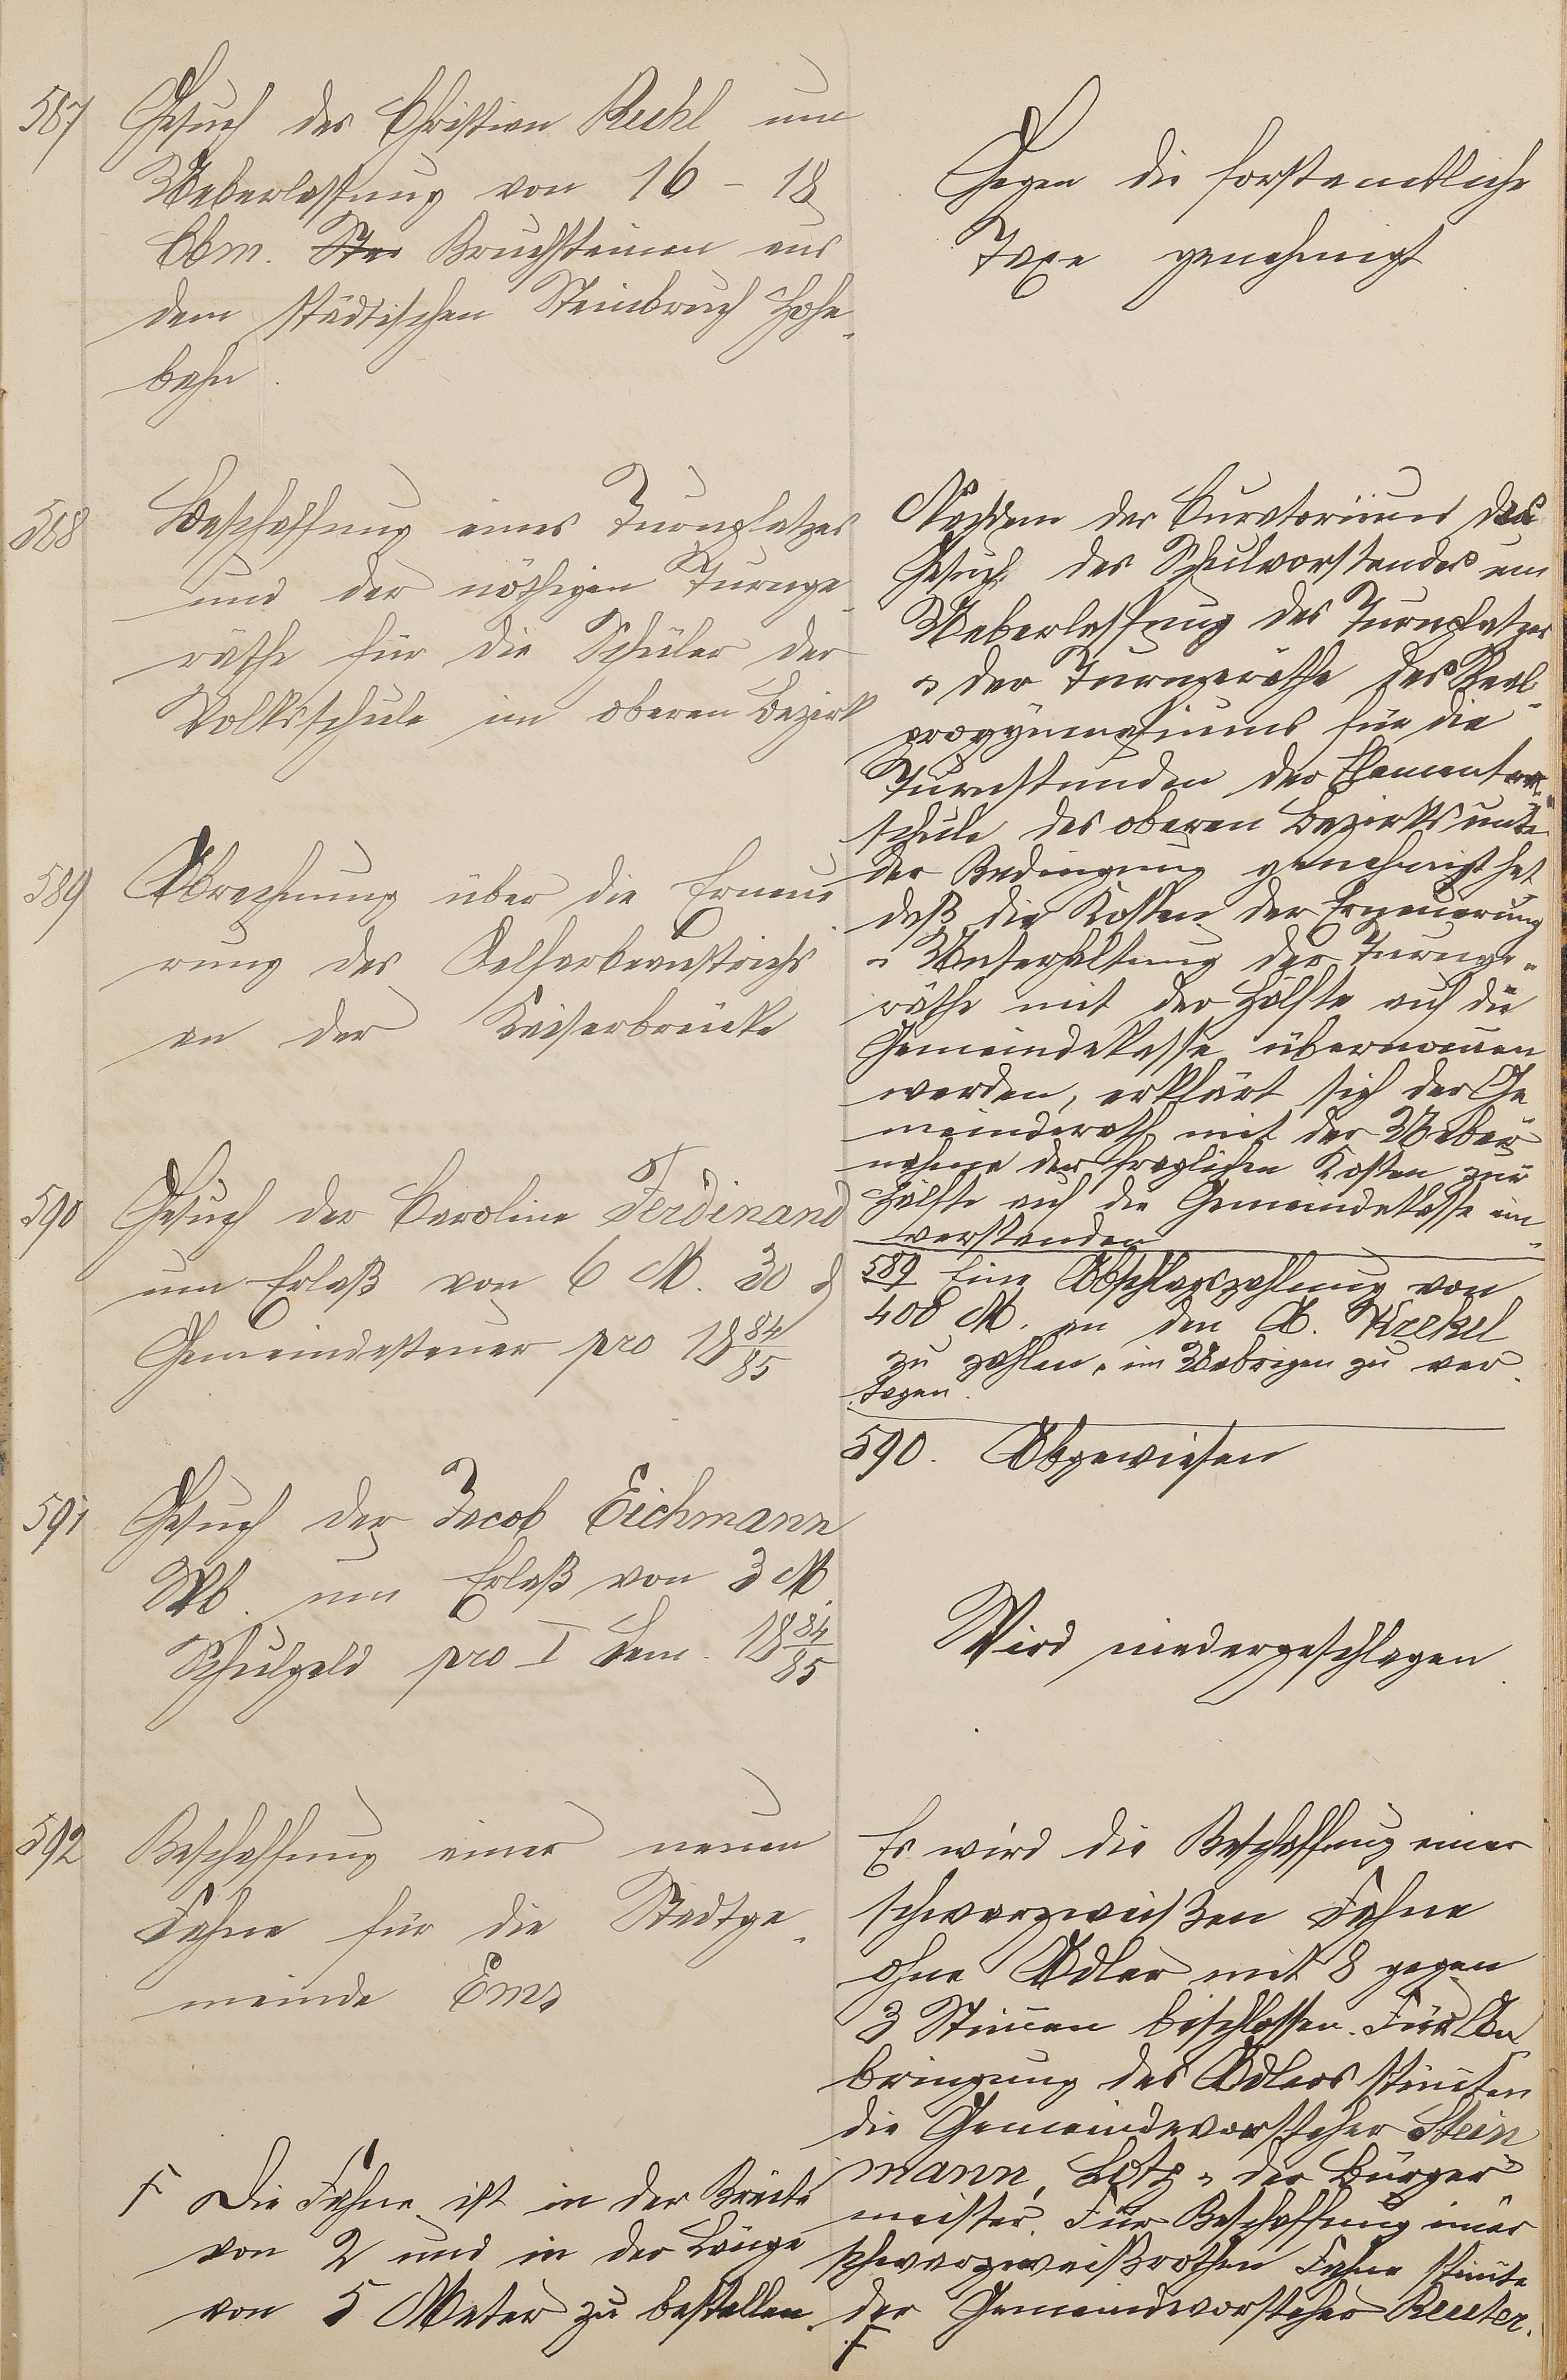 587
Gesuch des Christian Ruhl um
Ueberlassung von 16 - 18
Cbm. Bruchsteinen aus
dem städtischen Steinbruch Hohe-
bahn.
Gegen die forstamtliche
Taxe genehmigt
588
Beschaffung eines Turnplatzes
und der nöthigen Turnge-
räthe für die Schüler der
Volksschule im oberen Bezirk
Nachdem das Curatorium das
Gesuch des Schulvorstandes um
Ueberlassung des Turnplatzes
u der Turngeräthe des Real-
progymnasiums für die
Turnstunden der Elementar-
schule des oberen Bezirks unter
der Bedingung genehmigt hat,
daß die Kosten der Erneuerung
u Unterhaltung der Turnge-
räthe mit der Hälfte auf die
Gemeindekasse übernommen
werden, erklärt sich der Ge-
meinderath mit der Ueber-
nahme der fraglichen Kosten zur
Hälfte auf die Gemeindekasse ein-
verstanden
589
Abrechnung über die Erneue-
rung des Oelfarbeanstrichs
an der Kaiserbrücke
589 Eine Abschlagszahlung von
400 M. an den A. Krekel
zu zahlen, im Uebrigen zu ver-
tagen.
590
Gesuch der Caroline Ferdinand
um Erlaß von 6 M. 30 ₰
Gemeindesteuer pro 1884/85
590. Abgewiesen
591
Gesuch der Jacob Eichmann
Wb. um Erlaß von 3 M.
Schulgeld pro I Sem. 1884/85
Wird niedergeschlagen.
592
Beschaffung einer neuen
Fahne für die Stadtge-
meinde Ems
Es wird die Beschaffung einer
schwarzweißen Fahne
ohne Adler mit 8 gegen
3 Stimmen beschlossen. Für An-
bringung des Adlers stimten
die Gemeindevorsteher Stein
mann, Lotz u der Bürger-
meister. Für Beschaffung einer
schwarzweißrothen Fahne stimte
der Gemeindevorsteher Reuter.
F
F Die Fahne ist in der Breite
von 2 und in der Länge
von 5 Meter zu bestellen.